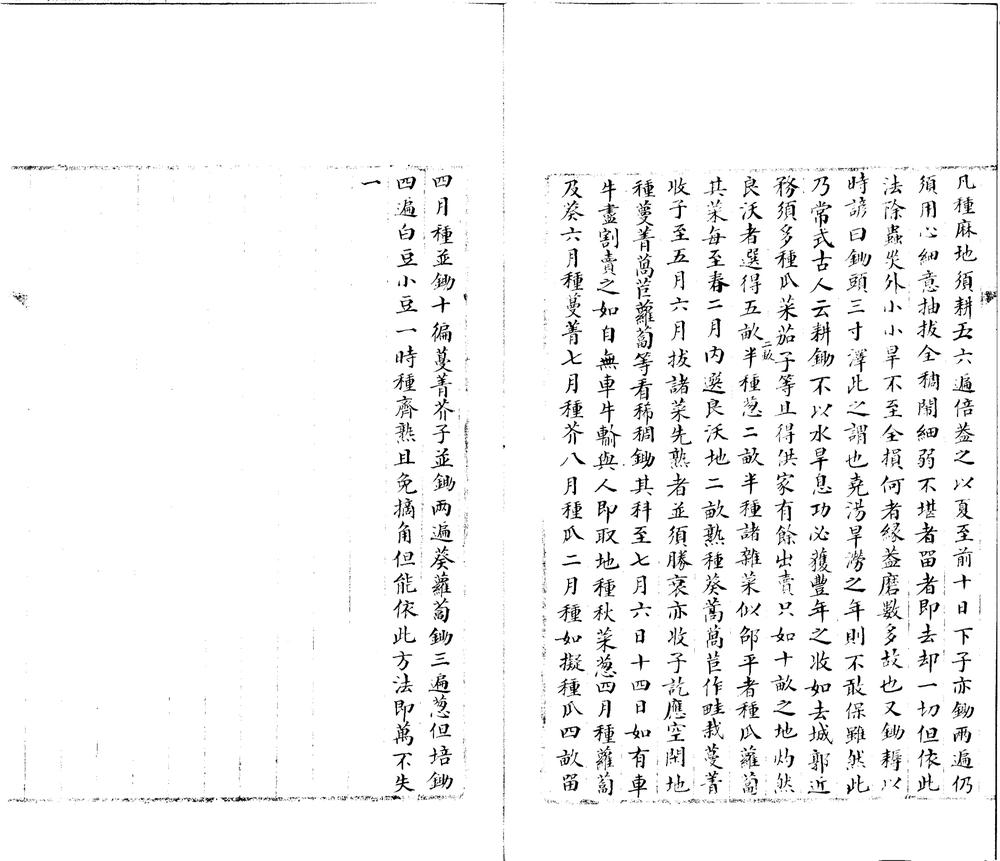 凡種麻地須耕五六遍倍葢之以夏至前十日下子亦鋤兩遍仍
須用心細意抽拔全稠鬧細弱不堪者留者即去却一切但依此
法除蟲災外小小旱不至全損何者緣葢磨數多故也又鋤耨以
時諺曰鋤頭三寸澤此之謂也堯湯旱澇之年則不敢保雖然此
乃常式古人云耕鋤不以水旱息功必獲豐年之收如去城郭近
務須多種瓜菜茄子等且得供家有餘出賣只如十畝之地灼然
良沃者選得五畝二畝半種葱二畝半種諸雜菜似邵平者種瓜蘿蔔
其菜每至春二月內選良沃地二畝熟種葵萵苣作畦栽蔓菁
收子至五月六月拔諸菜先熟者並須勝裛亦收子訖應空閑地
種蔓菁萵苣蘿蔔等看稀稠鋤其科至七月六日十四日如有車
牛盡割賣之如自無車牛輸與人即取地種秋菜葱四月種蘿蔔
及葵六月種蔓菁七月種芥八月種瓜二月種如擬種瓜四畝留
四月種並鋤十徧蔓菁芥子並鋤兩遍葵蘿蔔鋤三遍葱但培鋤
四遍白豆小豆一時種齊熟且免摘角但能依此方法即萬不失
一